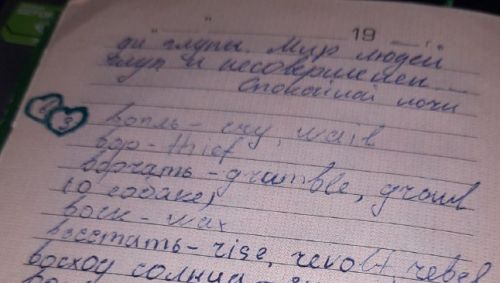 19
ди глупы. Мир людей
глуп и несовершенен...
Спокойной ночи
вопль - cry, wail
вор - thief
ворчать - grumble, growl
(о собаке)
воск - wax
восстать - rise, revolt, rebel
восход солнца -